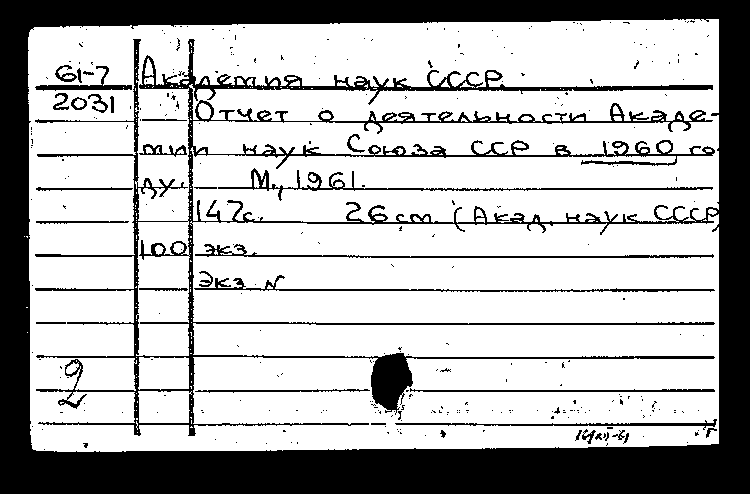 61-7 Академия наук СССР.
2031 Отчет о деятельности Акаде-
мии наук Союза ССР в 1960 го-
ду. М., 1961.
147с. 26 см. (Акад. наук СССР)
100 экз.
Экз N
2